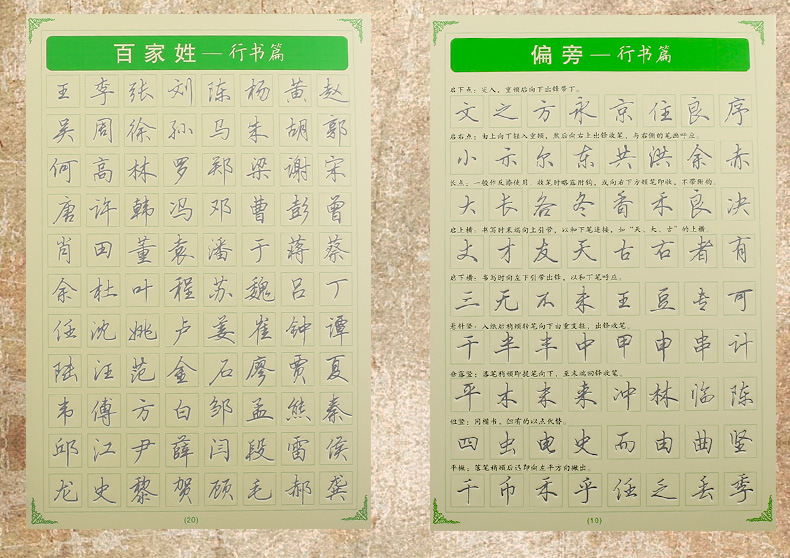 百家姓—行书篇
王李张刘陈杨黄赵
吴周徐孙马朱胡郭
何高林罗郑梁谢宋
唐许韩冯邓曹彭曾
肖田董袁潘于蒋蔡
余杜叶程苏魏吕丁
任沈姚卢姜崔钟谭
陆汪范金石廖贾夏
韦傅方白邹孟熊秦
邱江尹薛闫段雷侯
龙史黎贺顾毛郝龚
(20)
偏旁—行书篇
启下点：尖入，重顿后向下出锋带下。
文之方永京住良序
启右点：由上向下轻入重顿，然后向右上出锋收笔，与右侧的笔画呼应。
小示尔东共洪余赤
长点：一般作反捺使用，收笔时略露附钩，或向右下方顿笔即收，不带附钩。
大长各冬香禾良决
启上横：书写时末端向上引带，以和下笔连接，如“天、大、古”的上横。
丈才友天古右者有
启下横：书写时向左下引带出锋，以和下笔呼应。
三无不来王豆专可
悬针竖：入纸后稍顿转笔向下由重变轻，出锋收笔。
干半丰中甲申串计
垂露竖：落笔稍顿即提笔向下，至末端回锋收笔。
平木未来冲林临陈
短竖：同楷书，但有的以点代替。
四虫电史而由曲竖
平撇：落笔稍顿后迅即向左平方向撇出。
千币禾乎任乏丢季
(10)